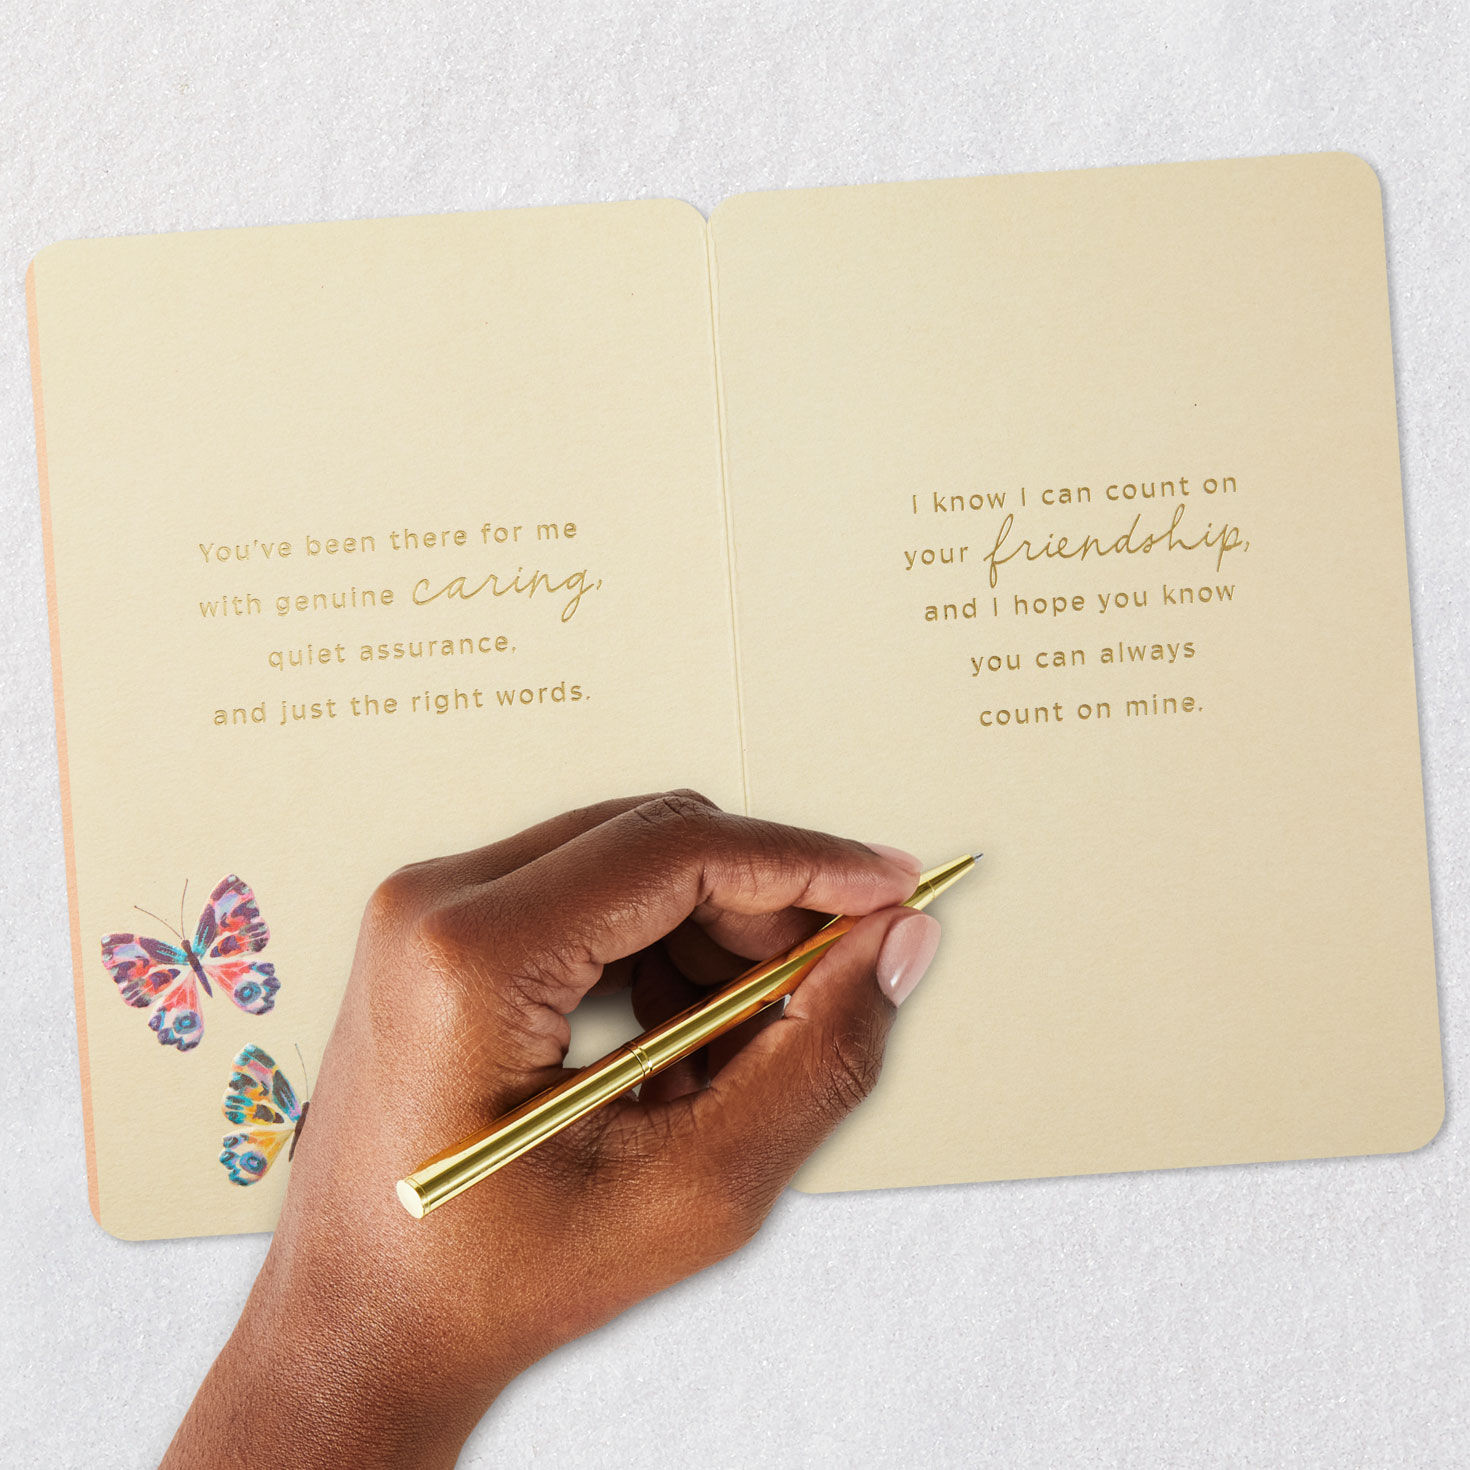 You've been there for me
with genuine caring,
quiet assurance,
and just the right words.
I know I can count on
your friendship,
and I hope you know
you can always
count on mine.